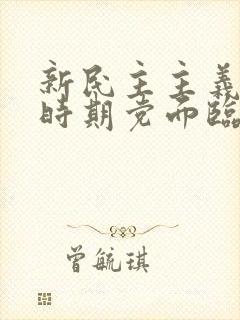 新民主主義
時期党面臨
曾毓琪